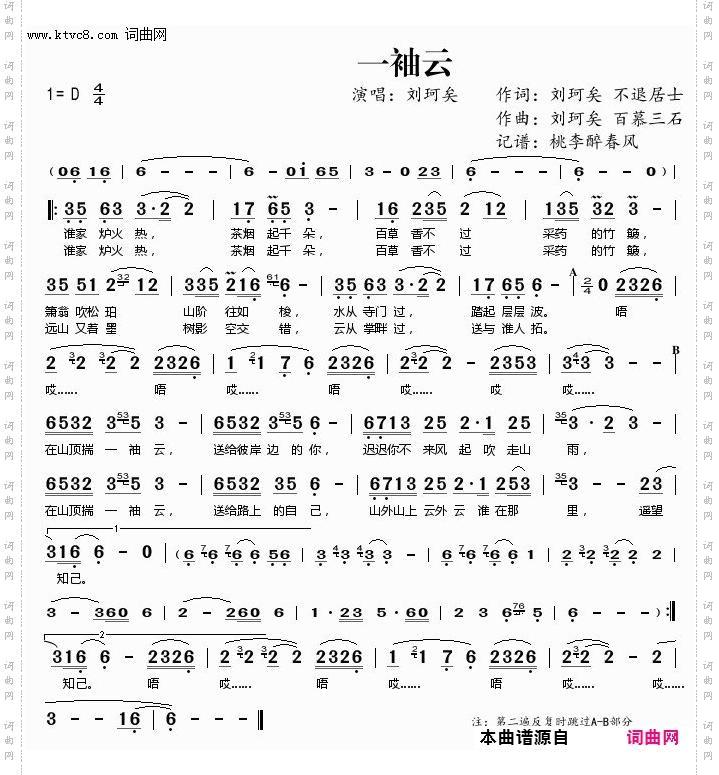 www.ktvc8.com 词曲网
一袖云
1= D 4/4
演唱：刘珂矣 作词：刘珂矣 不退居士
作曲：刘珂矣 百慕三石
记谱：桃李醉春风
(06 16 | 6 - - - | 6 - 01 65 | 3 - 0 23 | 6 - - - | 6 - - 0)
35 63 3·2 2 | 17 65 3 - | 16 235 2 12 | 135 32 3 - |
谁家 炉火 热， 茶烟 起千 朵， 百草 香不 过 采药 的竹 簸，
谁家 炉火 热， 茶烟 起千 朵， 百草 香不 过 采药 的竹 簸，
35 51 2 32 12 | 335 216 61 6 - | 35 63 3·2 2 | 17 65 6 - | A 2/4 0 2326 |
箫翁 吹松 珀 山阶 往如 梭， 水从 寺门 过， 踏起 层层 波。 唔
远山 又着 墨 树影 空交 错， 云从 掌畔 过， 送与 谁人 拓。
2 3 2 3 2 2 2326 | 1 2 1 7 6 2326 | 2 3 2 - 2353 | 3 4 3 3 - - B
哎…… 唔 哎…… 唔 哎…… 哎 哎……
6532 353 5 3 - | 6532 353 5 6 - | 6713 25 2·1 25 | 35 3· 2 3 - |
在山顶揣 一 袖 云， 送给彼岸 边 的 你， 迟迟你不 来风 起 吹 走山 雨，
6532 353 5 3 - | 6532 35 3 6 - | 6713 25 2·1 253 | 35 3 - - 23 |
在山顶揣 一 袖 云， 送给路上 的自 己， 山外山上 云外 云 谁在那 里， 遥望
1
316 6 - 0 | (6 76 76 6 56 | 3 43 43 3 - | 6 76 76 6 1 | 2 32 32 2 2 |
知己。
3 - 360 6 | 2 - 260 6 | 1·23 5·60 | 2 3 6 76 5 | 6 - - - ) :|
2
316 6 - 2326 | 2 3 2 3 2 2 2326 | 1 2 1 7 6 2326 | 2 3 2 3 2 2 - 2 |
知己。 唔 哎…… 唔 哎…… 唔 哎…… 哎
3 - - 16 | 6 - - - ‖
注：第二遍反复时跳过A-B部分
本曲谱源自 词曲网